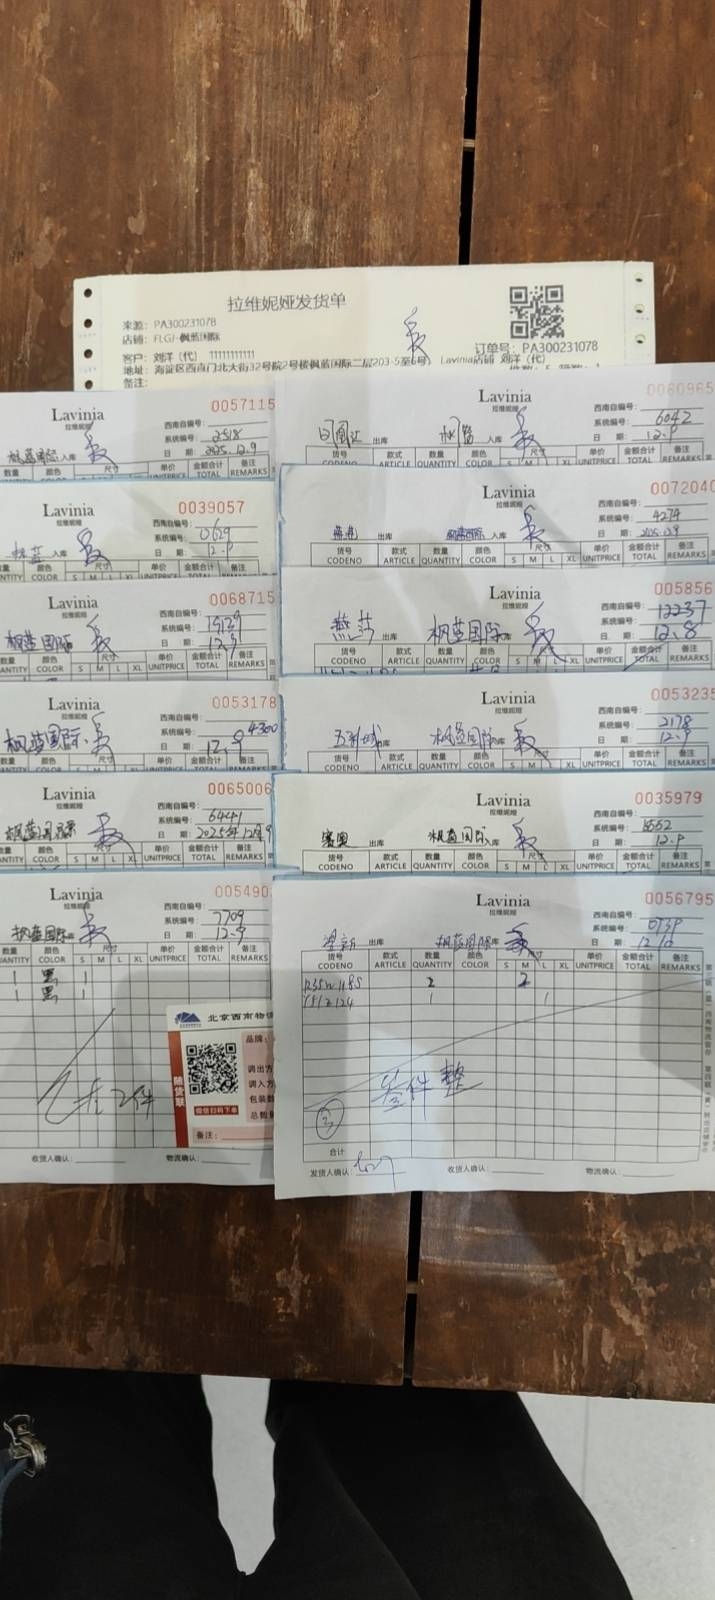 拉维妮娅发货单
来源: PA300231078
店铺: FLGJ-枫蓝国际
订单号: PA300231078
客户: 刘洋（代） 11111111111
地址: 海淀区西直门北大街32号院2号楼枫蓝国际二层203-5至6号） Lavinia店铺 刘洋（代）
备注:
Lavinia
拉维妮娅
0057115
西南自编号:
系统编号: 2518
枫蓝国际 入库
日 期: 2025.12.9
数量 颜色 尺寸 单价 金额合计 备注
Lavinia
拉维妮娅
0039057
西南自编号:
系统编号: 0629
枫蓝 入库
日 期: 12.9
数量 颜色 尺寸 单价 金额合计 备注
ANTITY COLOR S M L XL UNITPRICE TOTAL REMARKS
Lavinia
拉维妮娅
0068715
西南自编号:
系统编号:
枫蓝国际
日 期: 12.9
数量 颜色 尺寸 单价 金额合计 备注
ANTITY COLOR S M L XL UNITPRICE TOTAL REMARKS
Lavinia
拉维妮娅
0053178
西南自编号:
系统编号: 4300
枫蓝国际
日 期: 12.9
数量 颜色 尺寸 单价 金额合计 备注
ANTITY COLOR S M L XL UNITPRICE TOTAL REMARKS
Lavinia
拉维妮娅
0065006
西南自编号:
系统编号: 6441
枫蓝国际
日 期: 2025年12月9
数量 颜色 尺寸 单价 金额合计 备注
ANTITY COLOR S M L XL UNITPRICE TOTAL REMARKS
Lavinia
拉维妮娅
005490
西南自编号:
系统编号: 7709
枫蓝国际
日 期: 12.9
数量 颜色 尺寸 单价 金额合计 备注
ANTITY COLOR S M L XL UNITPRICE TOTAL REMARKS
1 黑 1
1 黑 1
共2件
北京西南物流
品牌:
随货联
调出方
调入方
包装数
总数量
微信扫码下单
备注:
收货人确认: 物流确认:
Lavinia
拉维妮娅
0060965
西南自编号:
系统编号: 6042
出库
日 期: 12.9
货号 款式 数量 颜色 尺寸 单价 金额合计 备注
CODENO ARTICLE QUANTITY COLOR S M L XL UNITPRICE TOTAL REMARKS
Lavinia
拉维妮娅
0072040
西南自编号:
系统编号: 4274
出库 枫蓝国际
日 期: 2025.12.9
货号 款式 数量 颜色 尺寸 单价 金额合计 备注
CODENO ARTICLE QUANTITY COLOR S M L XL UNITPRICE TOTAL REMARKS
Lavinia
拉维妮娅
005856
西南自编号:
系统编号: 12237
燕莎 枫蓝国际
日 期: 12.8
货号 款式 数量 颜色 尺寸 单价 金额合计 备注
CODENO ARTICLE QUANTITY COLOR S M L XL UNITPRICE TOTAL REMARKS
Lavinia
拉维妮娅
0053235
西南自编号:
系统编号: 2178
出库 枫蓝国际
日 期: 12.9
货号 款式 数量 颜色 尺寸 单价 金额合计 备注
CODENO ARTICLE QUANTITY COLOR S M L XL UNITPRICE TOTAL REMARKS
Lavinia
拉维妮娅
0035979
西南自编号:
系统编号:
出库 枫蓝国际
日 期: 12.9
货号 款式 数量 颜色 尺寸 单价 金额合计 备注
CODENO ARTICLE QUANTITY COLOR S M L XL UNITPRICE TOTAL REMARKS
Lavinia
拉维妮娅
0056795
西南自编号:
系统编号:
出库 枫蓝国际
日 期:
货号 款式 数量 颜色 尺寸 单价 金额合计 备注
CODENO ARTICLE QUANTITY COLOR S M L XL UNITPRICE TOTAL REMARKS
2 2
1 1
叁件整
合计
发货人确认: 收货人确认: 物流确认: